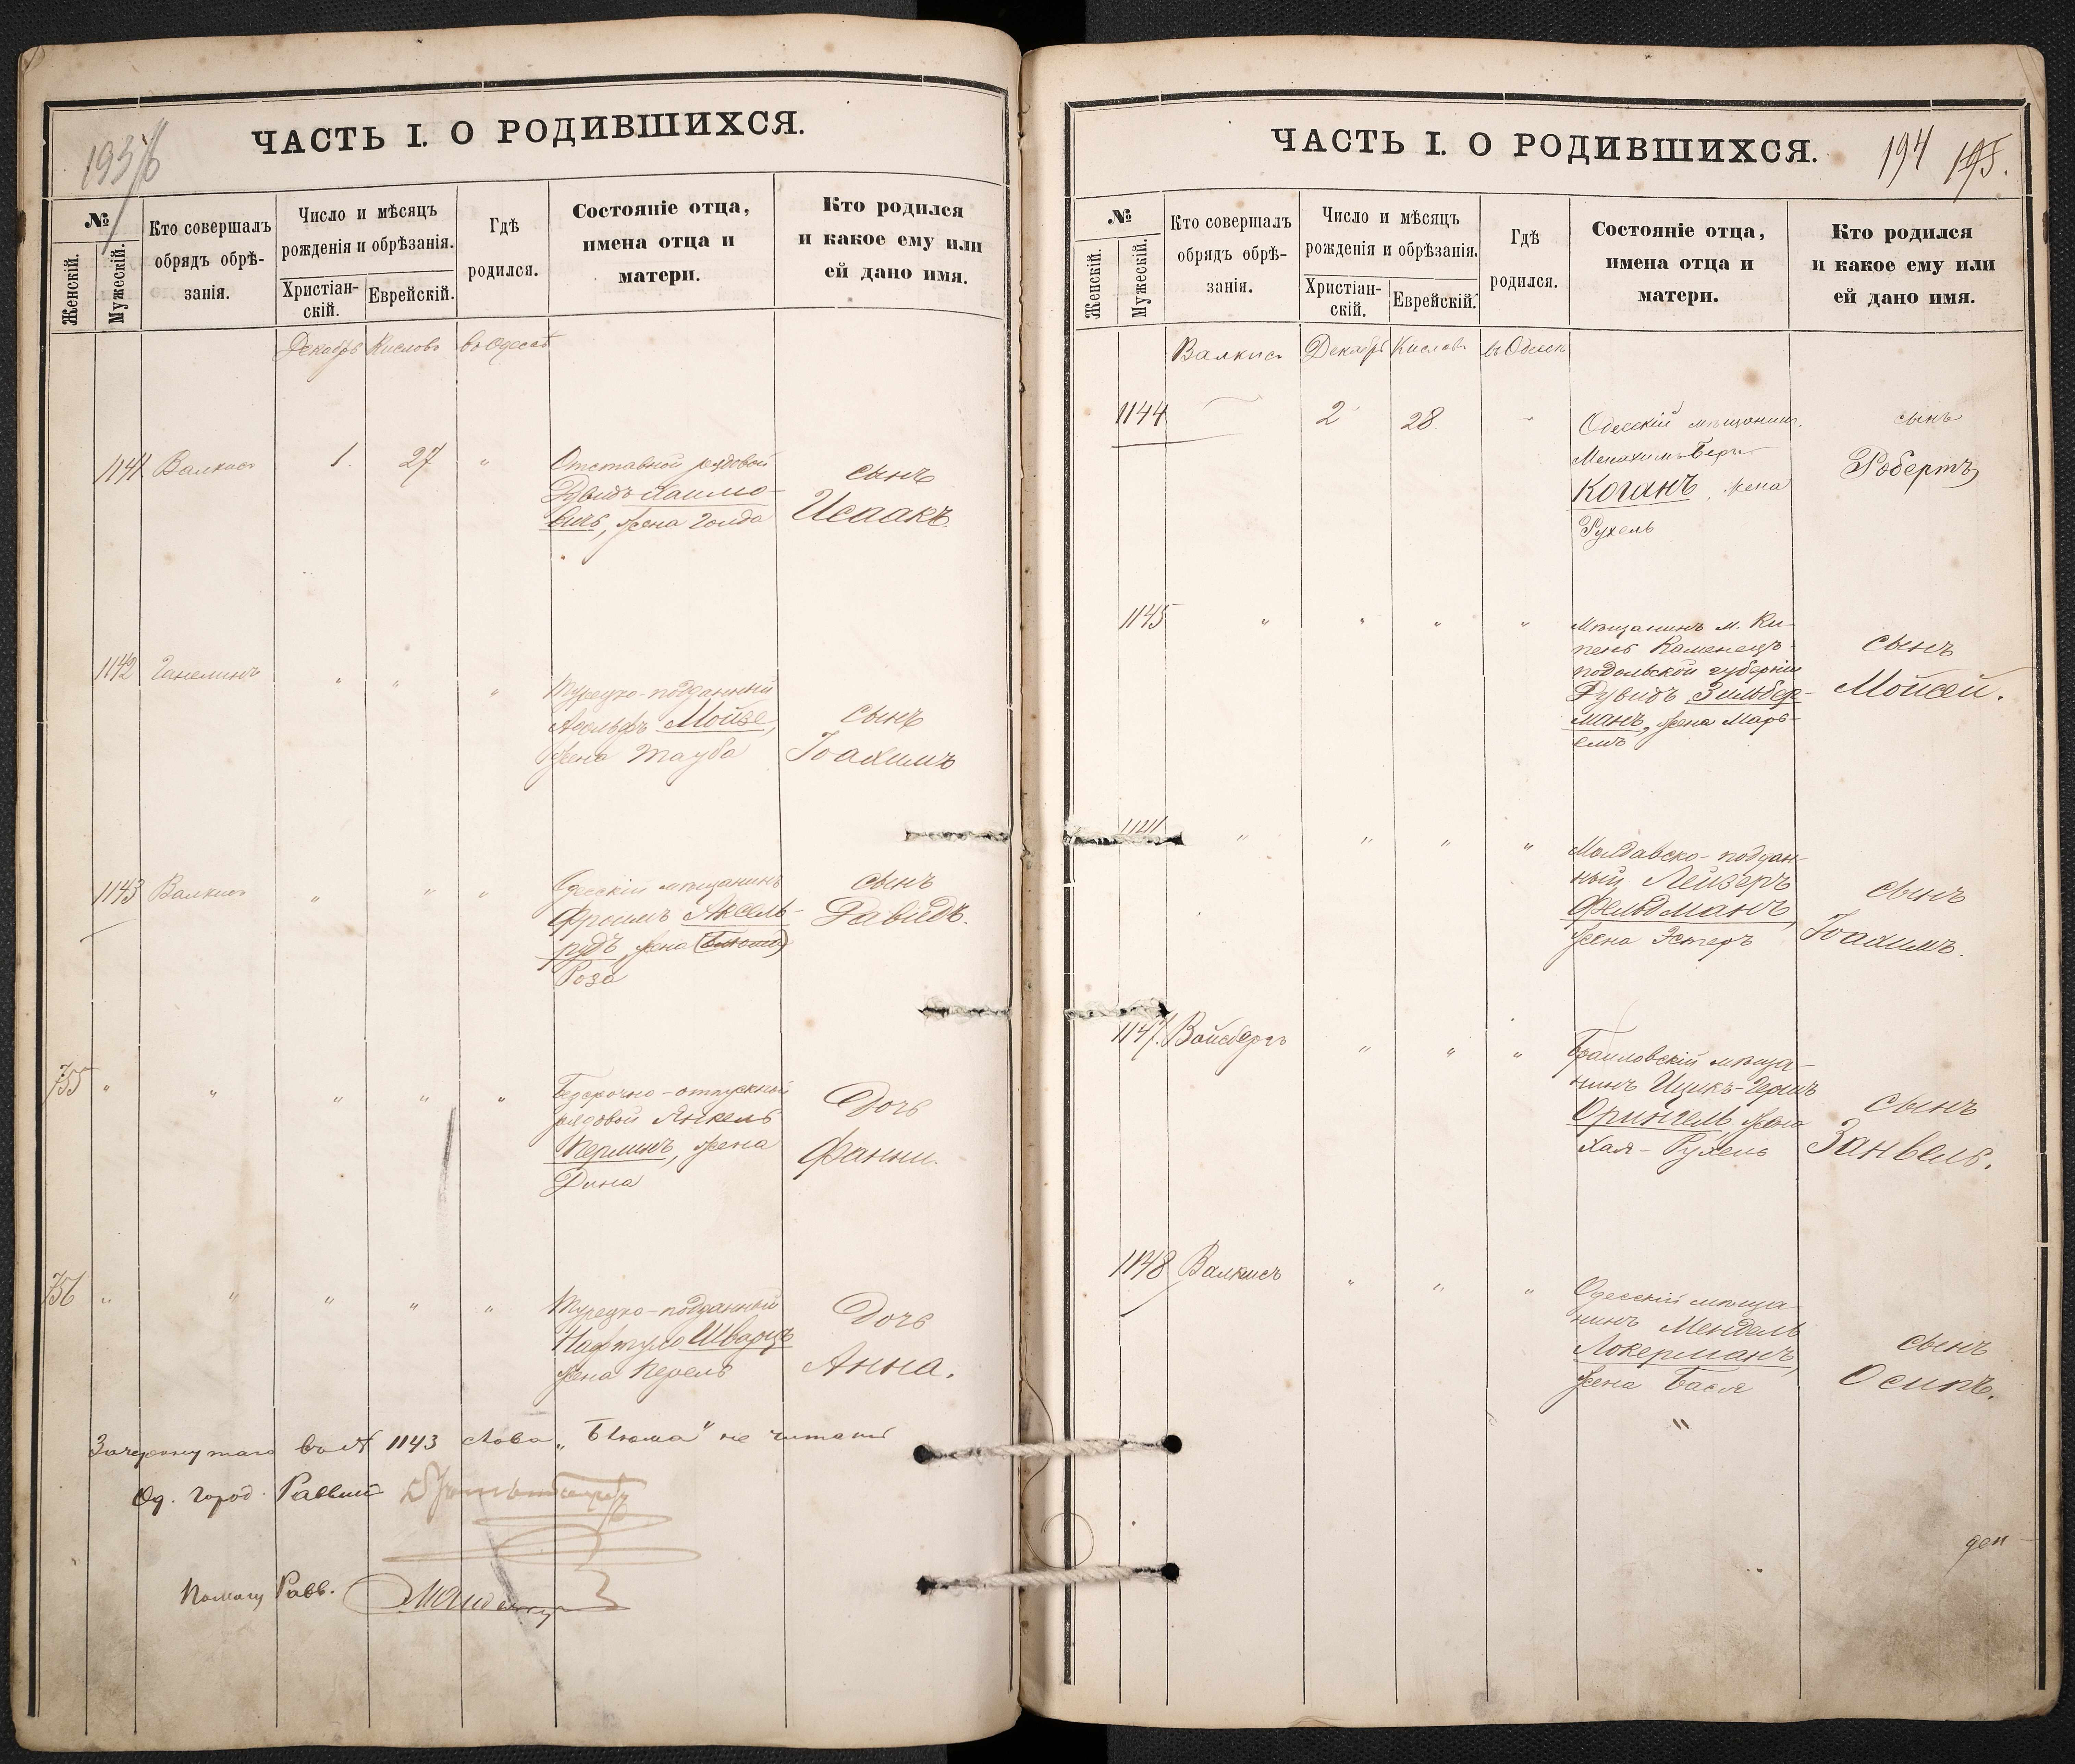 193/6
ЧАСТЬ I. О РОДИВШИХСЯ.
№
Женскій.
Мужескій.
Кто совершалъ
обрядъ обрѣ-
занія.
Число и мѣсяцъ
рожденія и обрѣзанія.
Христіан-
скій.
Еврейскій.
Гдѣ
родился.
Состояніе отца,
имена отца и
матери.
Кто родился
и какое ему или
ей дано имя.
Декабрь Кислевъ въ Одессѣ
1141 Валкисъ 1. 27 "
Отставной рядовой
Дувидъ Хаимо-
вичъ, жена Голда
сынъ
Исаакъ
1142 Ганелинъ " " "
Турецко-подданный
Адольфъ Мойзе,
жена Тауба
сынъ
Іоахимъ
1143 Валкисъ " " "
Одесскій мѣщанинъ
Фроимъ Аксель-
рудъ, жена (Блюма)
Роза
сынъ
Давидъ.
755 " " " " "
Безсрочно-отпускной
рядовой Янкель
Перлинъ, жена
Дина
Дочь
Фанни.
756 " " " " "
Турецко-подданный
Нафтуло Шварцъ
жена Перель
Дочь
Анна.
Зачеркнутаго въ № 1143 слова „Блюма" не читать
Од. Город. Раввинъ
Помощ. Равв.
194 195.
ЧАСТЬ I. О РОДИВШИХСЯ.
№
Женскій.
Мужескій.
Кто совершалъ
обрядъ обрѣ-
занія.
Число и мѣсяцъ
рожденія и обрѣзанія.
Христіан-
скій.
Еврейскій.
Гдѣ
родился.
Состояніе отца,
имена отца и
матери.
Кто родился
и какое ему или
ей дано имя.
Валкисъ Декабрь Кислевъ въ Одессѣ
1144 2 28.
Одесскій мѣщанинъ,
Менахимъ-Беръ
Коганъ, жена
Рухель
сынъ
Робертъ
1145 " " " "
Мѣщанинъ м. Ку-
пень Каменецъ-
подольской губерніи
Дувидъ Зильбер-
манъ, жена Марь-
емъ
сынъ
Мойсей.
" " " "
Молдавско-поддан-
ный Лейзеръ
Фельдманъ,
жена Эстеръ
сынъ
Іоахимъ.
1147. Вайсбергъ " " "
Браиловскій мѣща-
нинъ Ицикъ-Гершъ
Орингель жена
Хая-Рухель
сынъ
Занвель.
1148 Валкисъ " " "
Одесскій мѣща-
нинъ Мендель
Локерманъ,
жена Бася
сынъ
Осипъ.
"